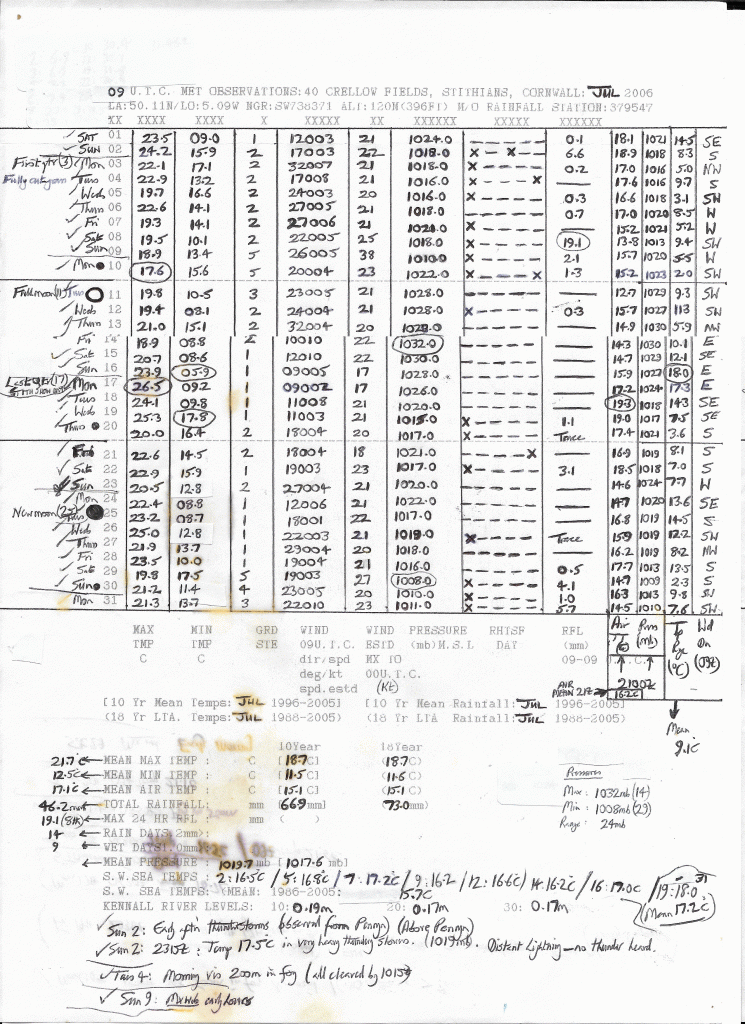 09 U.T.C. MET OBSERVATIONS:40 CRELLOW FIELDS, STITHIANS, CORNWALL: JUL 2006
LA:50.11N/LO:5.09W NGR:SW738371 ALT:120M(396FT) M/O RAINFALL STATION:379547
XX XXXX XXXX X XXXXX XX XXXXXX XXXXX XXXXXX
✓ SAT 01 23.5 09.0 1 12003 21 1024.0 0.1 18.1 1021 14.5 SE
✓ SUN 02 24.2 15.9 2 17003 22 1018.0 x x 6.6 18.9 1018 8.3 S
First qtr (3) Mon 03 22.1 17.1 2 32007 21 1018.0 x 0.2 17.0 1016 5.0 NW
Tues 04 22.9 13.2 2 17008 21 1016.0 x 17.6 1016 9.7 S
Weds 05 19.7 16.6 2 24003 20 1016.0 x 0.3 16.6 1018 3.1 SW
Thurs 06 22.6 14.1 2 27005 21 1018.0 0.7 17.0 1020 8.5 W
Fri 07 19.3 14.1 2 27006 21 15.2 1021 5.2 W
✓ Sat 08 19.5 10.1 2 22005 25 1018.0 19.1 13.8 1013 9.4 SW
✓ Sun 09 18.9 13.4 5 26005 38 1010.0 x 2.1 15.7 1020 5.5 W
Mon 10 17.6 15.6 5 20004 23 1022.0 x x 1.3 15.2 1023 2.0 SW
Full moon (11) Tues 11 19.8 10.5 3 23005 21 1028.0 12.7 1029 9.3 SW
Weds 12 19.4 08.1 2 24004 21 1028.0 x 0.3 15.7 1027 11.3 SW
Thurs 13 21.0 15.1 2 32004 20 1028.0 14.9 1030 5.9 NW
Fri 14 18.9 08.8 10010 22 1032.0 14.3 1030 10.1 E
✓ Sat 15 20.7 08.6 1 12010 22 1030.0 14.7 1029 12.1 SE
Sun 16 23.9 05.9 1 09005 17 1028.0 15.9 1027 18.0 E
Last Qtr (17) Mon 17 26.5 09.2 1 09002 17 1026.0 17.2 1024 17.3 E
Tues 18 24.1 09.8 1 11008 21 1020.0 19.3 1018 14.3 SE
Weds 19 25.3 17.8 1 11003 21 1015.0 x 1.1 19.0 1017 7.5 SE
Thurs 20 20.0 16.4 2 18004 20 1017.0 x Trace 17.4 1021 3.6 S
✓ Fri 21 22.6 14.5 2 18004 18 1021.0 x 16.9 1019 8.1 S
✓ Sat 22 22.9 15.9 1 19003 23 1017.0 x 3.1 18.5 1018 7.0 S
Sun 23 20.5 12.8 2 27004 21 1020.0 14.6 1024 7.7 W
Mon 24 22.4 08.8 1 12006 21 1022.0 14.7 1020 13.6 SE
New moon (25) Tues 25 23.2 08.7 1 18001 22 1017.0 16.8 1019 14.5 S
Weds 26 25.0 12.8 1 22003 21 1019.0 x Trace 15.9 1019 12.2 SW
Thurs 27 21.9 13.7 1 29004 20 1018.0 16.2 1019 8.2 NW
Fri 28 23.5 10.0 1 19004 21 1016.0 0.5 17.7 1013 13.5 S
Sat 29 19.8 17.5 5 19003 27 1008.0 4.1 14.7 1009 2.3 S
Sun 30 21.2 11.4 4 23005 20 1010.0 1.0 16.3 1013 9.8 SW
Mon 31 21.3 13.7 3 22010 23 1011.0 5.7 14.5 1010 7.6 SW
MAX MIN GRD WIND WIND PRESSURE RHTSF RFL Air Pres Tp Wd
TMP TMP STE 09U.T.C. ESTD (mb)M.S.L DAY (mm) (mb) Rge Dn
C C dir/spd MX TO 09-09 U.T.C. (°C) (09Z)
deg/kt 00U.T.C.
spd.estd (Kt) AIR MEAN 21Z 2100Z 16.2C
[10 Yr Mean Temps: JUL 1996-2005] [10 Yr Mean Rainfall: JUL 1996-2005]
(18 Yr LTA. Temps: JUL 1988-2005) (18 Yr LTA Rainfall: JUL 1988-2005)
Mean 9.1C
10Year 18Year
21.7°C ← MEAN MAX TEMP : C [18.7 C] (18.7 C)
12.5°C ← MEAN MIN TEMP : C [11.5 C] (11.6 C)
17.1°C ← MEAN AIR TEMP : C [15.1 C] (15.1 C)
46.2mm ← TOTAL RAINFALL: mm [66.9 mm] (73.0 mm)
19.1 (8th) ← MAX 24 HR RFL : mm ( )
14 ← RAIN DAYS(.2mm):
9 ← WET DAYS(1.0mm)
← MEAN PRESSURE : 1019.7 mb [1017.6 mb]
Pressures
Max: 1032mb (14)
Min: 1008mb (29)
Range: 24mb
S.W. SEA TEMPS : 2: 16.5C / 5: 16.8C / 7: 17.2C / 9: 16.2 / 12: 16.6C) 14: 16.2C / 16: 17.0C / 19: 18.0
S.W. SEA TEMPS: (MEAN: 1986-2005: 15.7C (Mean 17.2C)
KENNALL RIVER LEVELS: 10: 0.19m 20: 0.17m 30: 0.17m
✓ Sun 2: Early pm thunderstorms (observed from Penryn) (Above Penryn)
✓ Sun 2: 2315Z: Temp 17.5C in very heavy thundery showers. (1019mb). Distant lightning – no thunder heard.
✓ Tues 4: Morning vis 200m in fog (all cleared by 1015Z
✓ Sun 9: early hours